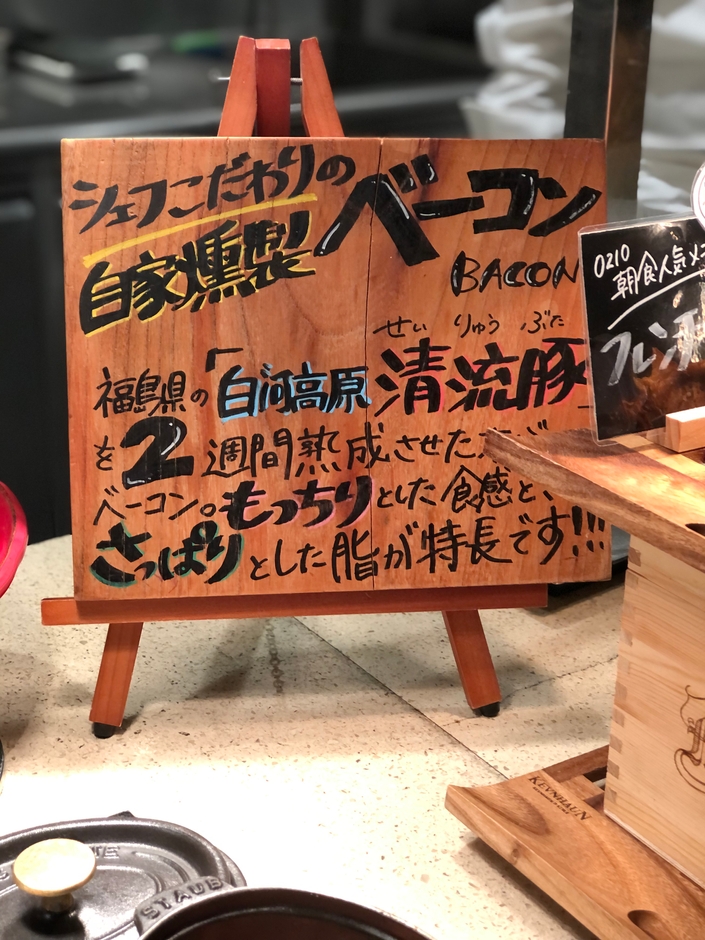 シェフこだわりの
自家燻製
ベーコン
BACON
せい りゅう ぶた
福島県の「白河高原清流豚」
を2週間熟成させた
ベーコン。もっちりとした食感と、
さっぱりとした脂が特長です!!!
0210
朝食人気メ
フレン
KEVNHAUN
STAUB